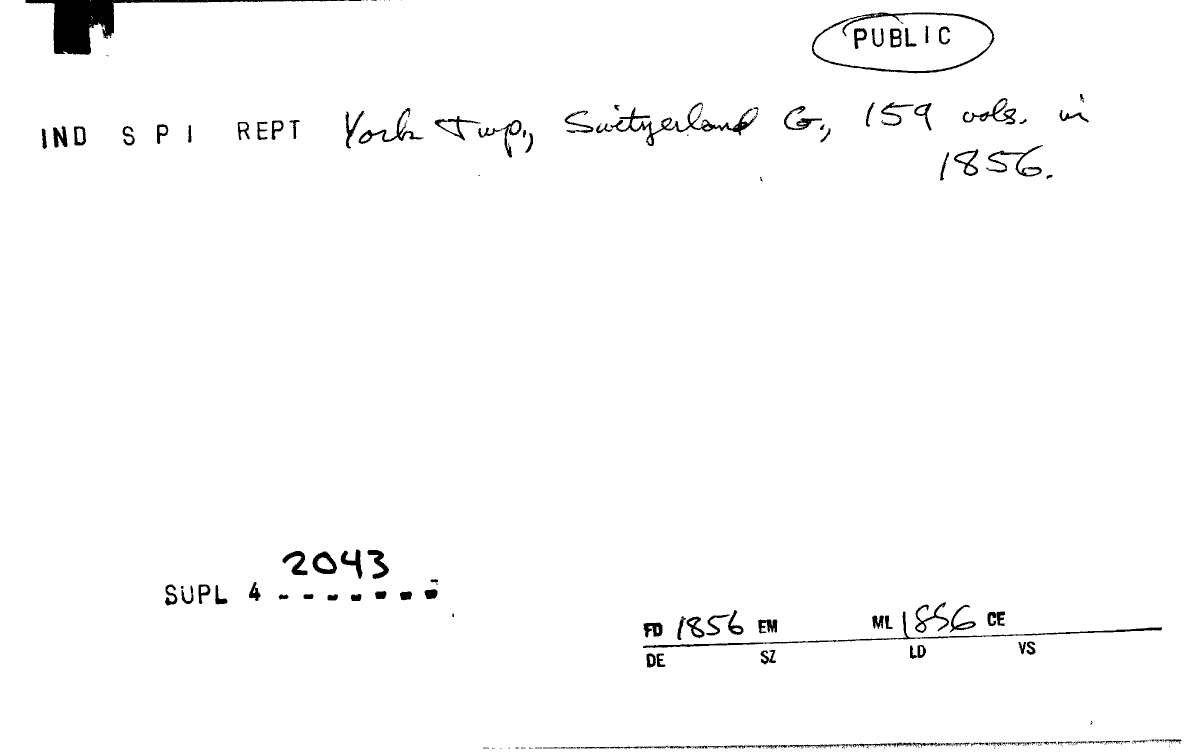 PUBLIC
IND S P I REPT York Twp., Switzerland Co., 159 vols. in
1856.
2043
SUPL 4 - - - - - - -
FD 1856 EM ML 1856 CE
DE SZ LD VS